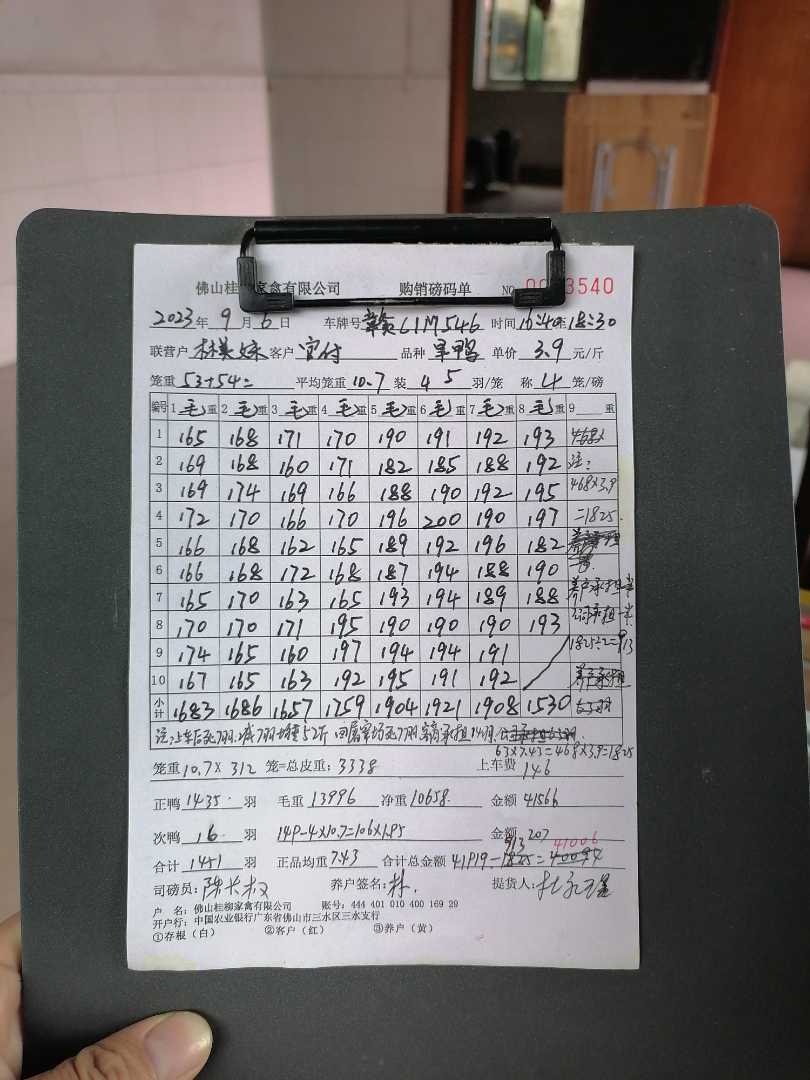 佛山桂柳家禽有限公司 购销磅码单 NO 3540
2023年 9月 6日 车牌号 赣C1M546 时间 16:40 18:30
联营户 林美妹 客户 官付 品种 旱鸭 单价 3.9 元/斤
笼重 53+54= 平均笼重 10.7 装 4 5 羽/笼 称 4 笼/磅
编号 1毛重 2毛重 3毛重 4毛重 5毛重 6毛重 7毛重 8毛重 9 重
1 165 168 171 170 190 191 192 193 468
2 169 168 160 171 182 185 188 192 注:
3 169 174 169 166 188 190 192 195 468×3.9
4 172 170 166 170 196 200 190 197 =1825.
5 166 168 162 165 189 192 196 182
6 166 168 172 168 187 194 188 190
7 165 170 163 165 193 194 189 188 养户承担一半
8 170 170 171 195 190 190 190 193 公司承担一半
9 174 165 160 197 194 194 191 1825÷2=913
10 167 165 163 192 195 191 192
小计 1683 1686 1657 1759 1904 1921 1908 1530
注:上车后死7羽.减7羽
63×7.43=468×3.9=1825
笼重 10.7×312 笼=总皮重: 3338 上车费 146
正鸭 1435 羽 毛重 13996 净重 10658 金额 41566
次鸭 16 羽 149-4×10.7=106×1.95 金额 207
913 41006
合计 1451 羽 正品均重 7.43 合计总金额 41919-1825=40094
司磅员: 养户签名: 林. 提货人:
户 名: 佛山桂柳家禽有限公司 账号: 444 401 010 400 169 29
开户行: 中国农业银行广东省佛山市三水区三水支行
①存根（白） ②客户（红） ③养户（黄）